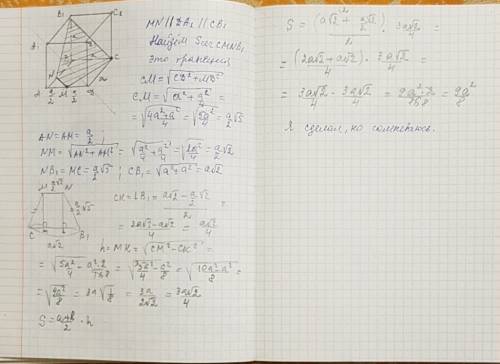 B₁ C₁
A₁ N C
A a/2 M a/2 B
MN ∥ DA₁ ∥ CB₁
Найдём Sсеч CMNB₁
Это трапеция
CM = √(CB² + MB²)
CM = √(a² + a²/4) =
= √((4a² + a²)/4) = √(5a²/4) = a/2 √5
AN = AM = a/2 ;
NM = √(AN² + AM²) = √(a²/4 + a²/4) = √(2a²/4) = a√2/2
NB₁ = MC = a/2 √5 ; CB₁ = √(a² + a²) = a√2
M a√2/2 N
a/2 √5
C K L B₁
a√2
CK = LB₁ = (a√2 − a√2/2)/2 =
= (2a√2 − a√2)/4 = a√2/4
h = MK = √(CM² − CK²) =
= √(5a²/4 − a²·2/16 8) = √(5a²/4 − a²/8) = √((10a² − a²)/8) =
= √(9a²/8) = 3a √(1/8) = 3a/(2√2) = 3a√2/4
S = (a+b)/2 · h
S = (a√2 + a√2/2)/2 · 3a√2/4 =
= (2a√2 + a√2)/4 · 3a√2/4 =
= 3a√2/4 · 3a√2/4 = 9a²·2/16 8 = 9a²/8
Я сделал, но сомневаюсь.